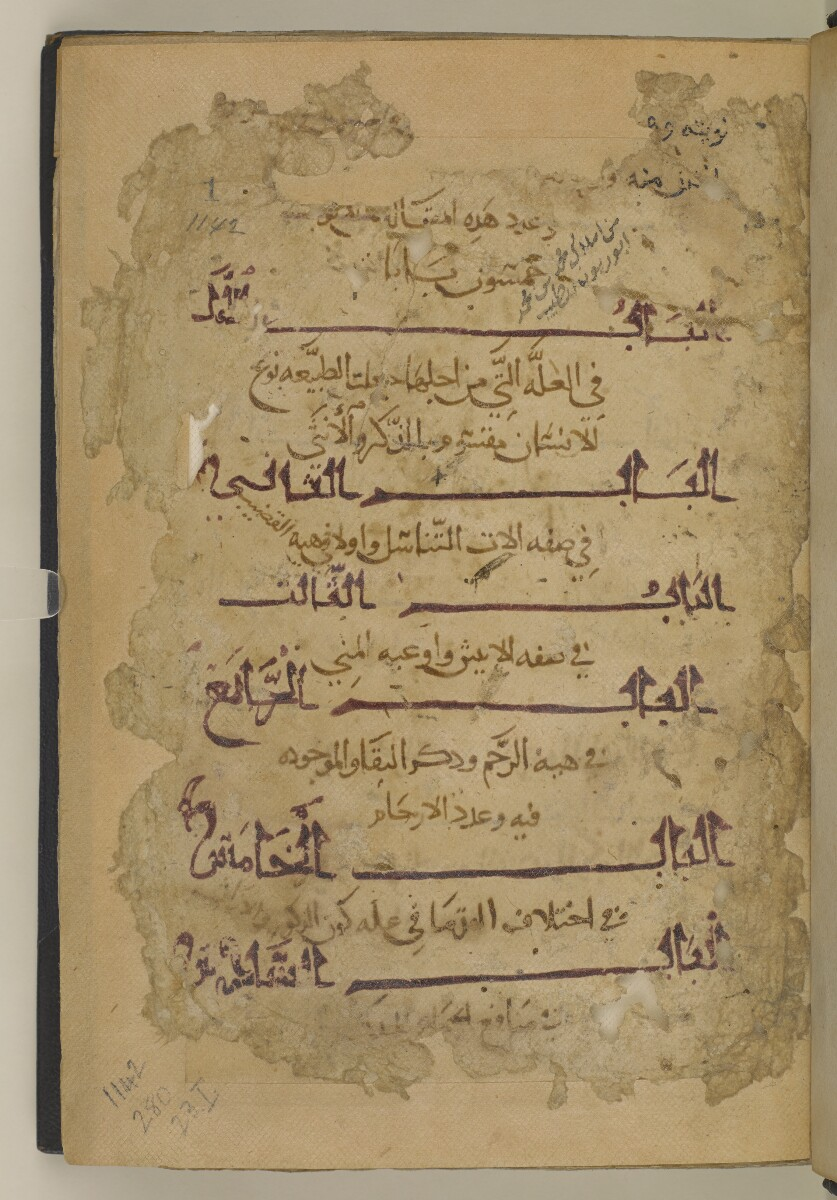 نوبته وو
منه
1
1142
وعدد هذه المقاله
خمسون بابا
البابُ الاول
في العلّه التّي من اجلها جعلت الطبيّعه نوع
الانسان مقسوم بالذّكر والأُنثَى
البَاب الثاني
في صفه الات التّناسل واولا في هيه القضيب
البَابُ الثّالث
في صفه الانثيين واوعيه المني
الباب الرّابع
في هيه الرّحم وذكر البقا والموجوده
فيه وعدد الارحام
الباب الخامس
في اختلاف القدما في عله كون الذكور
الباب السّادس
في منافع
1142
280
23I